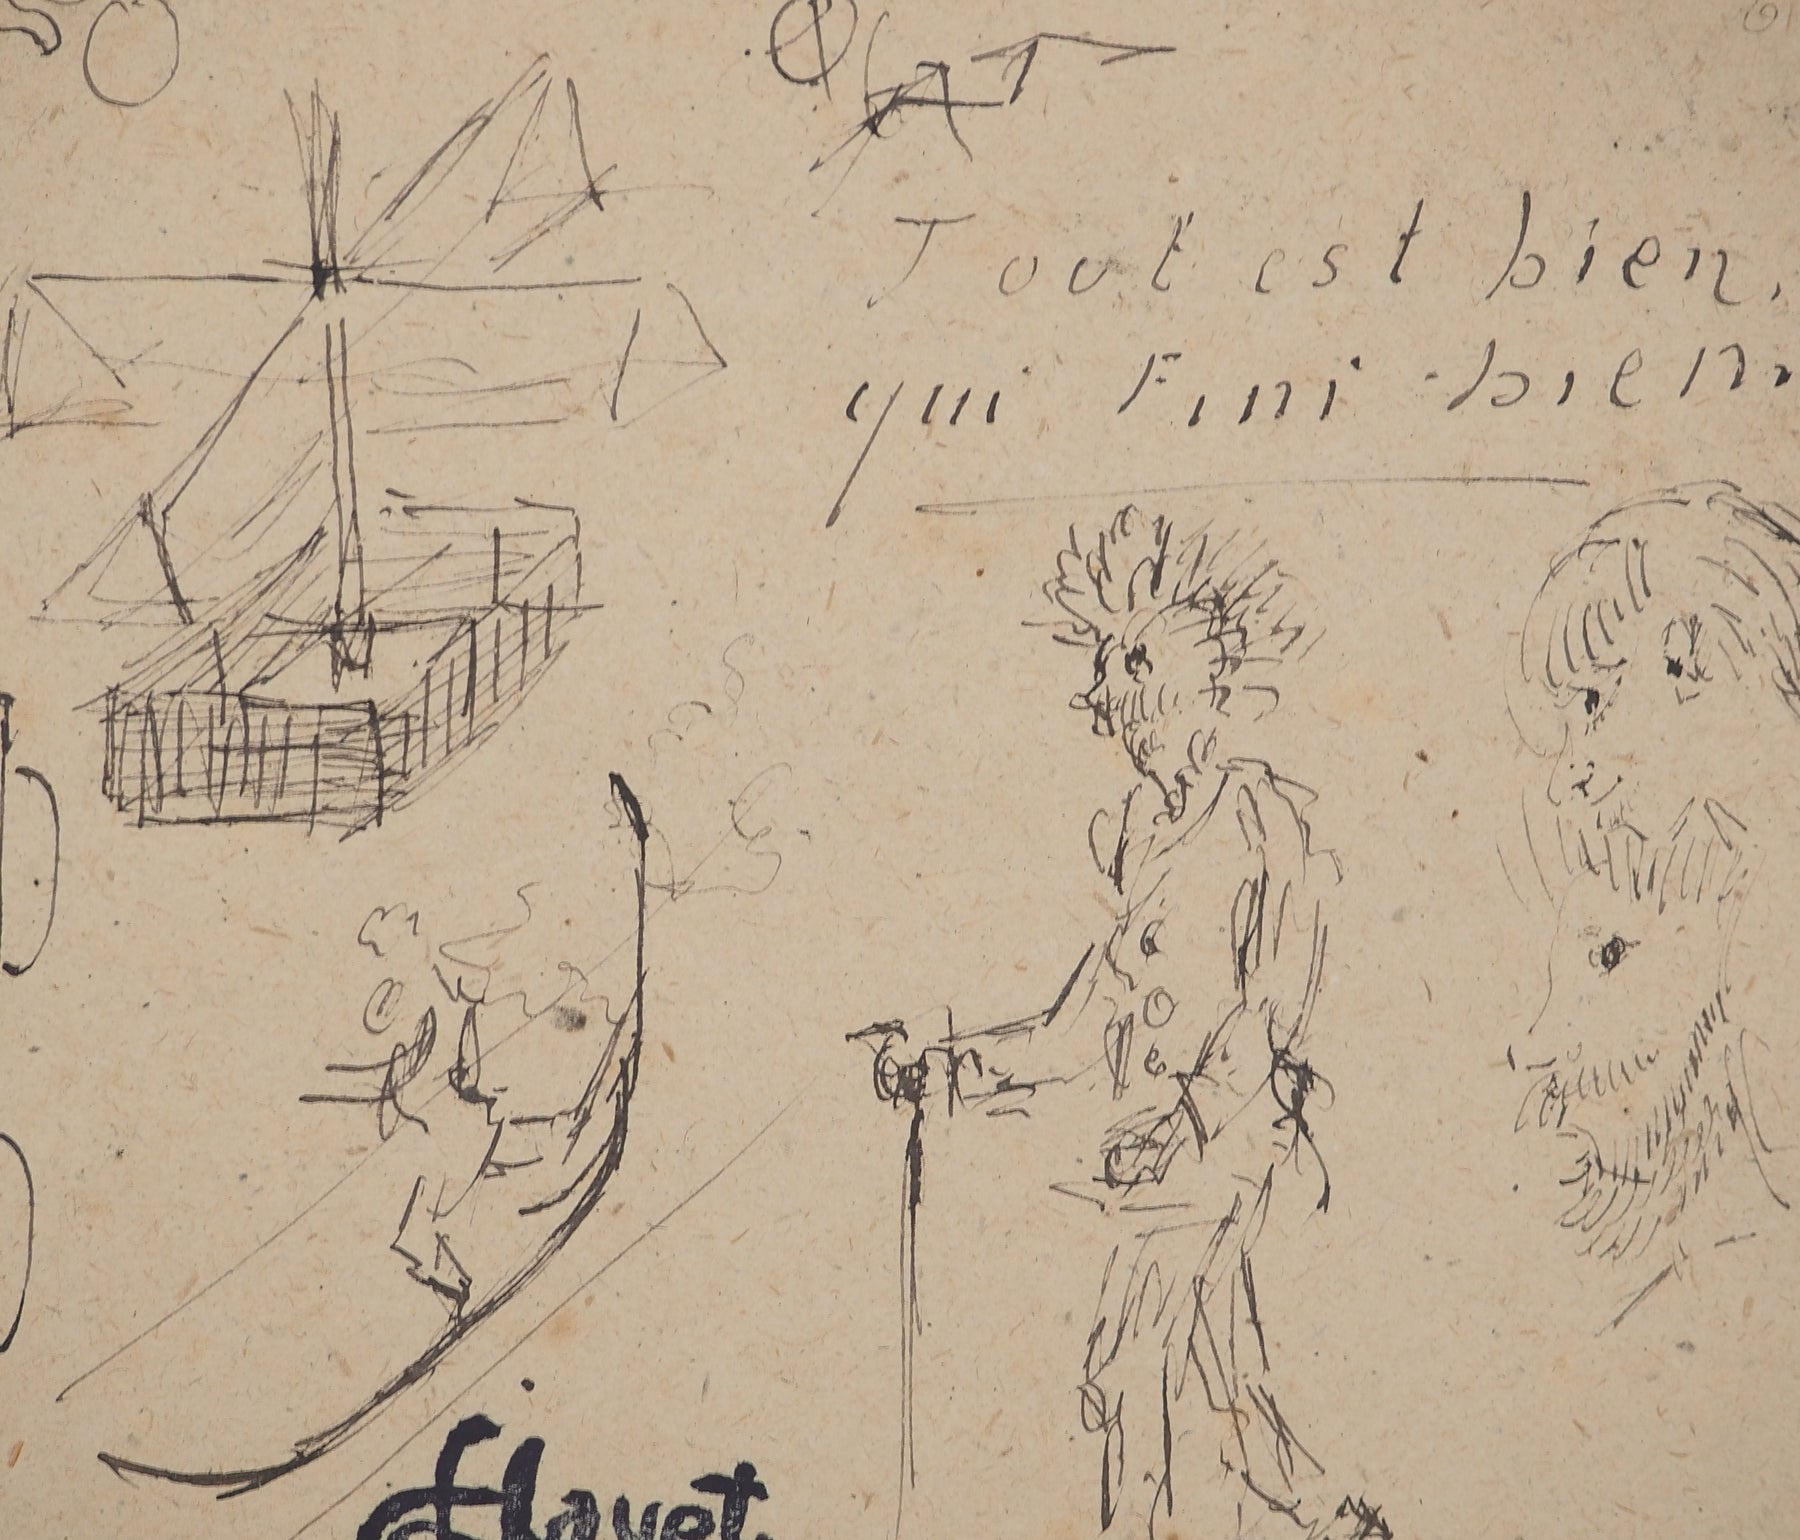 Tout est bien,
qui Fini bien.
Hayet.